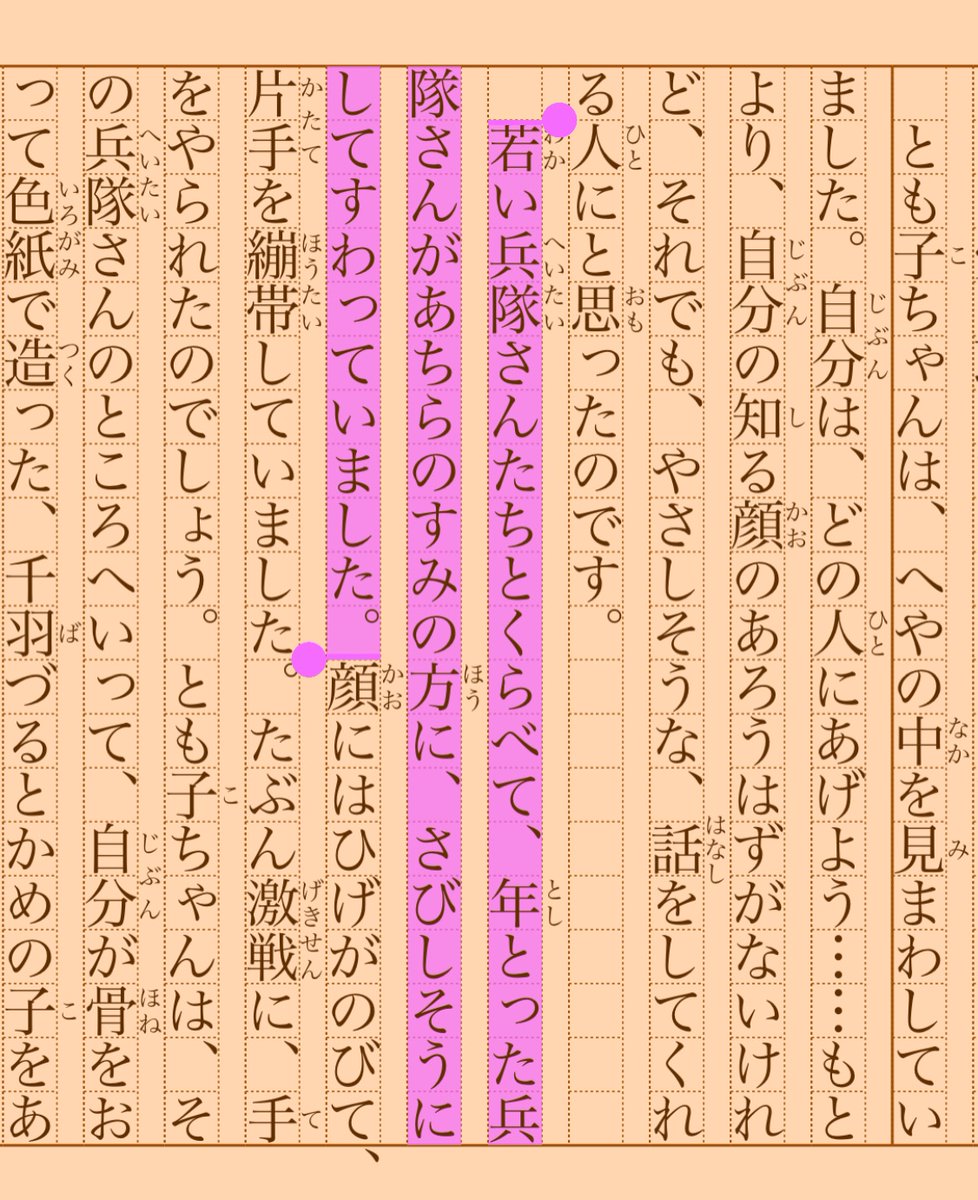 とも子ちゃんは、へやの中を見まわしてい
ました。自分は、どの人にあげよう……もと
より、自分の知る顔のあろうはずがないけれ
ど、それでも、やさしそうな、話をしてくれ
る人にと思ったのです。
若い兵隊さんたちとくらべて、年とった兵
隊さんがあちらのすみの方に、さびしそうに
してすわっていました。顔にはひげがのびて、
片手を繃帯していました。たぶん激戦に、手
をやられたのでしょう。とも子ちゃんは、そ
の兵隊さんのところへいって、自分が骨をお
って色紙で造った、千羽づるとかめの子をあ